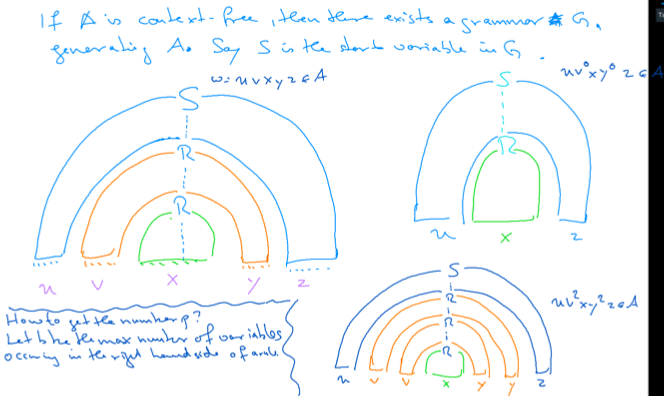 If A is context-free, then there exists a grammar G,
generating A. Say S is the start variable in G.
w = uvxyz ∈ A
S
R
R
u v x y z
uv⁰xy⁰z ∈ A
S
R
u x z
S
R
R
R
uv²xy²z ∈ A
u v v x y y z
How to get the number p?
Let b be the max number of variables
occuring in the right hand side of a rule.